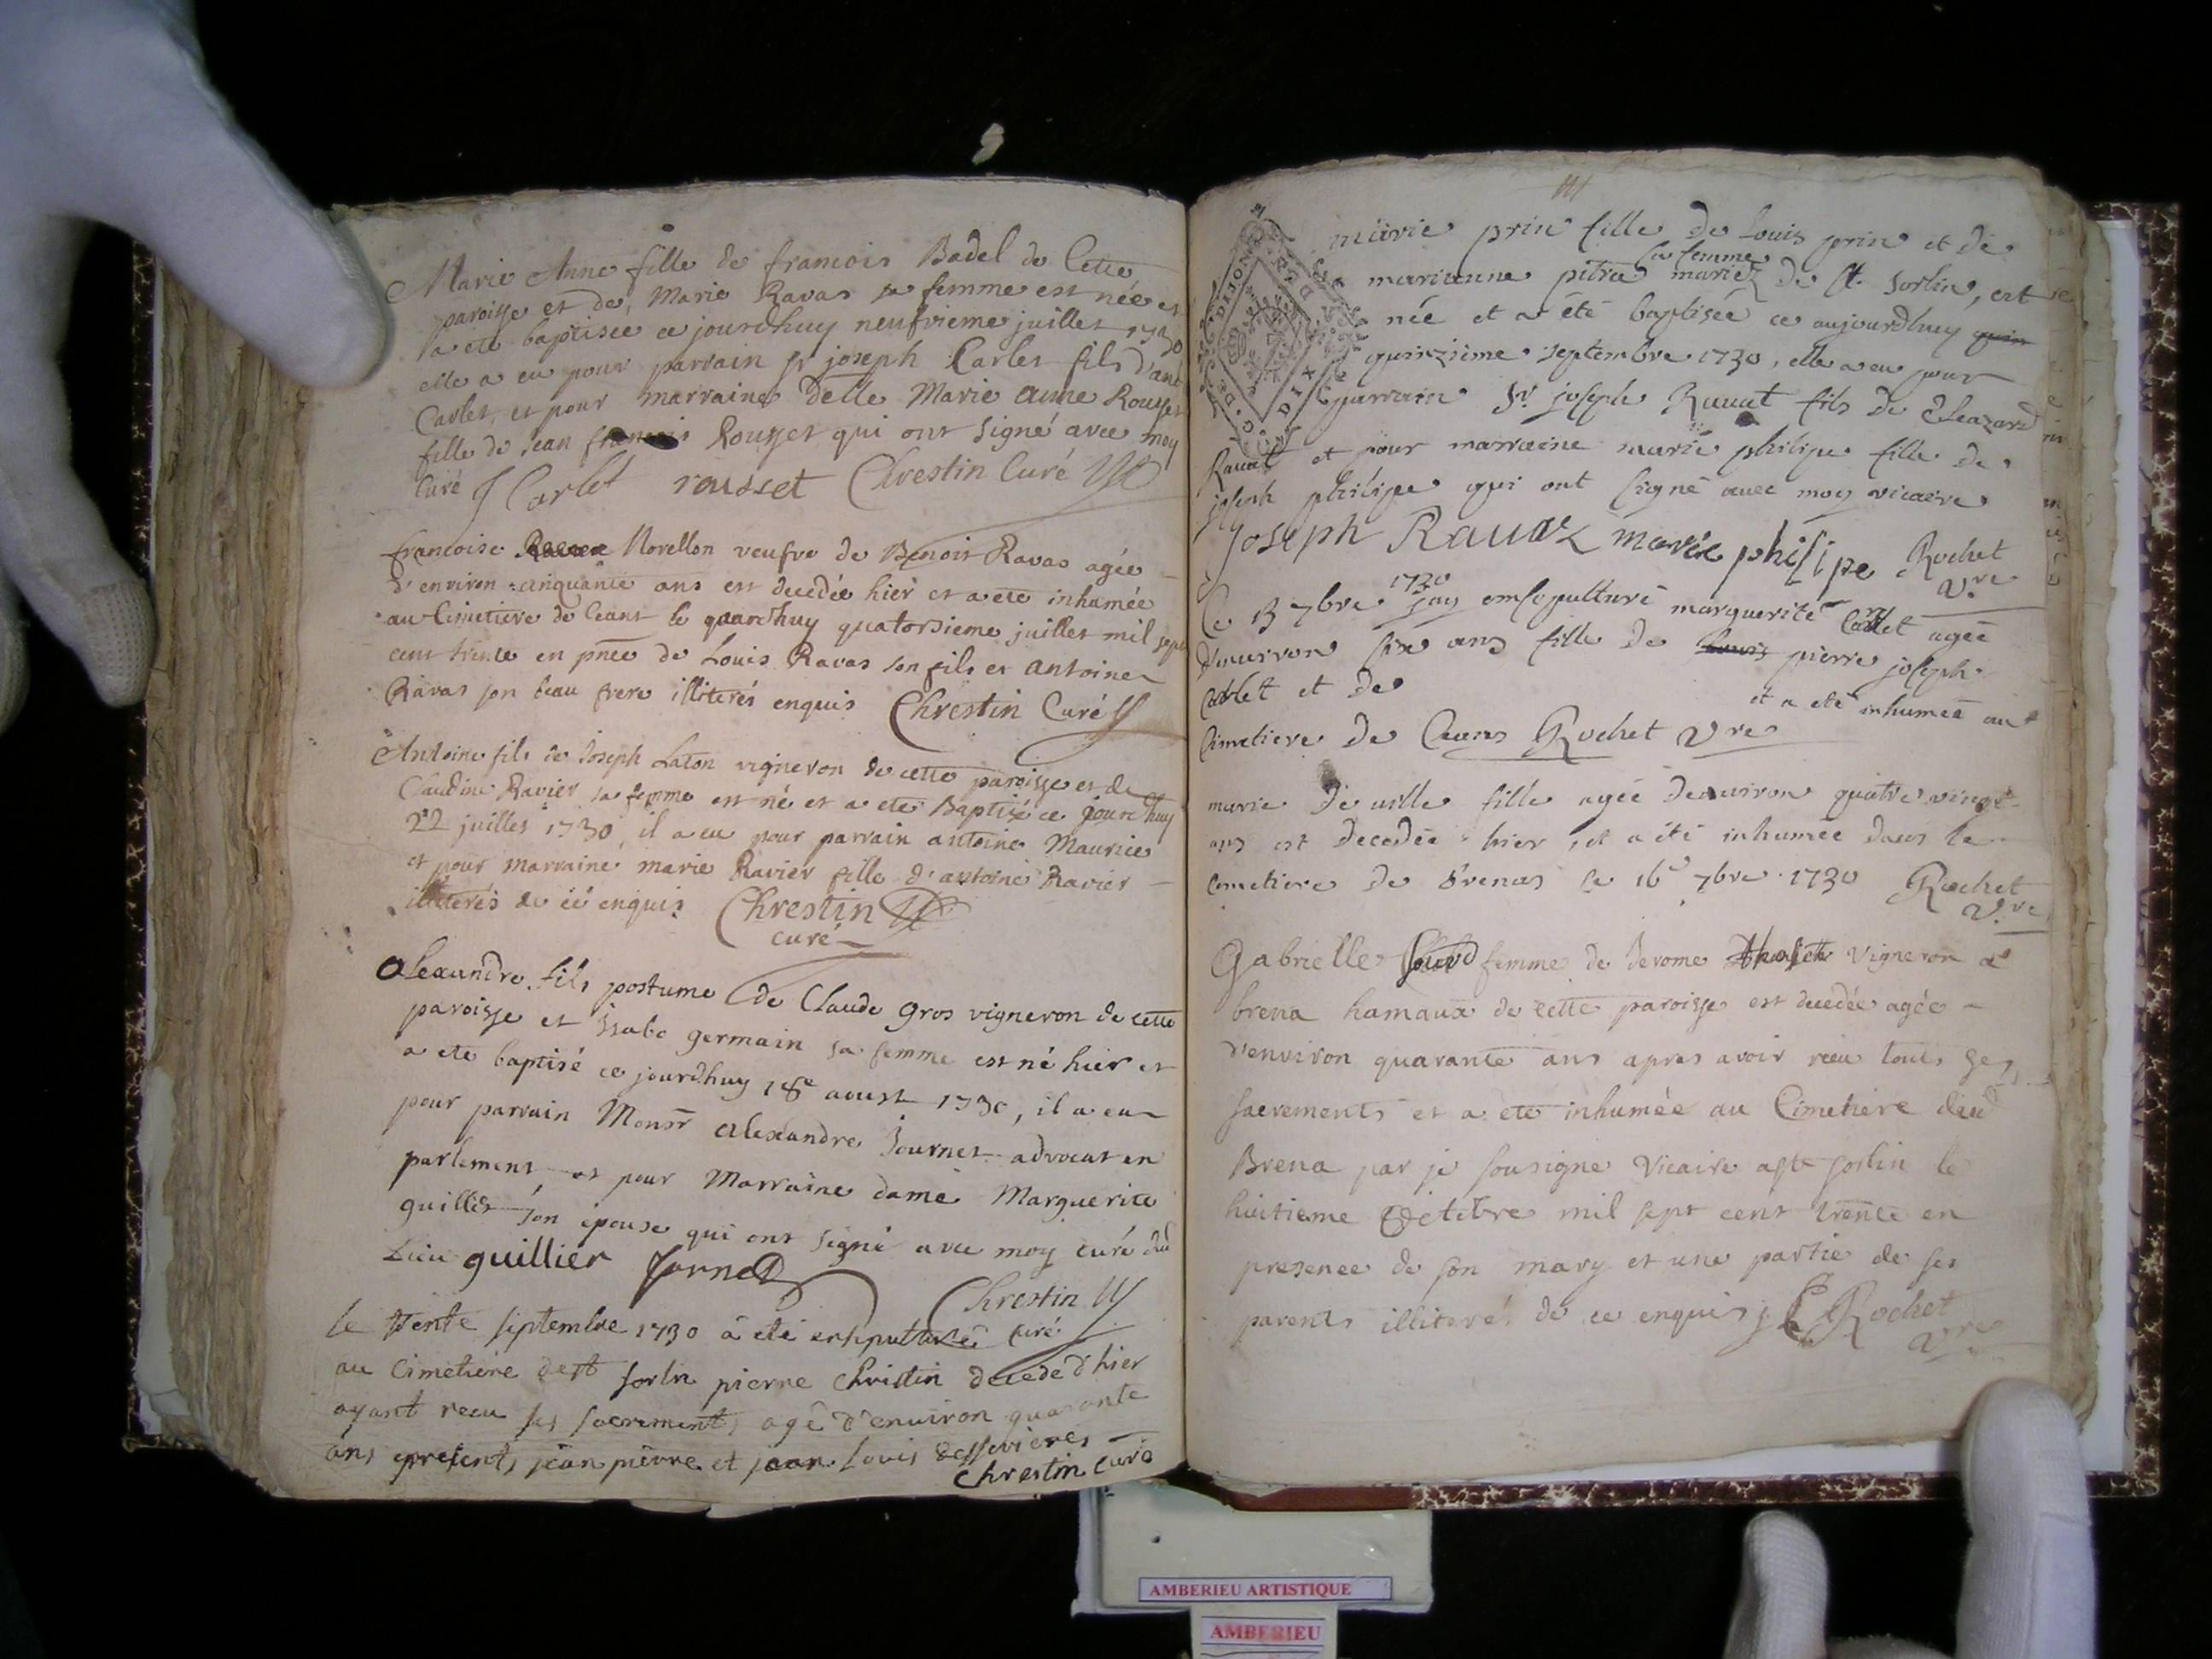 Marie Anne fille de francois Badel de Cette
paroisse et de, Marie Ravas sa femme est née et
a eté baptisée ce jourdhuy neufvieme juillet 1730
elle a eu pour parrain sr joseph Carlet fils d'ant
Carlet, et pour marraine delle Marie anne Rousset
fille de Jean francois Rousset qui ont signé avec moy
Curé J Carlet rousset Chrestin Curé
francoise Morellon veufve de Benoit Ravas agée
d'environ cinquante ans est decedée hier et a eté inhumée
au Cimetiere de Ceans le jourdhuy quatorsieme juillet mil sept
cent trente en pnce de Louis Ravas son fils et antoine
Ravas son beau frere illiterés enquis Chrestin Curé
Antoine fils de Joseph Laton vigneron de cette paroisse et de
Claudine Ravier sa femme est né et a eté Baptisé ce jourdhuy
22 juillet 1730, il a eu pour parrain antoine Maurice
et pour marraine marie Ravier fille d'antoine Ravier
illiterés de ce enquis Chrestin
curé
alexandre fils postume de Claude gros vigneron de cette
paroisse et Isabe germain sa femme est né hier et
a eté baptisé ce jourdhuy 18e aoust 1730, il a eu
pour parrain Monsr alexandre Journet advocat en
parlement, et pour Marraine dame Marguerite
guillier son epouse qui ont signé avec moy curé dud
Lieu guillier Jornet
Chrestin
curé
le trente septembre 1730 à eté ensepulturé
au Cimetiere de st sorlin pierre Christin decedé d'hier
ayant receu ses sacrements agé d'environ quarante
ans presents jean pierre et jean Louis
Chrestin curé
DIJON
DIX
marie prin fille de Louis prin et de
sa femme
marianne pitra mariez de st. sorlin, est
née et a été baptisée ce aujourdhuy quin
quinzième septembre 1730, elle a eu pour
parrain sr joseph Ravat fils de Eleazard
Ravat et pour marraine marie philipe fille de
joseph philipe qui ont signé avec moy vicaire
Joseph Ravaz marie philipe Rochet
vre
1730
Ce 13 7bre jay ensepulturé marguerite Carlet agée
denviron six ans fille de Louis pierre joseph
Carlet et de
et a eté inhumée au
Cimetiere de Ceans Rochet vre
marie de ville fille agée denviron quatre vingt
ans est decedée hier, et a été inhumée dans le
cemetiere de Brenas le 16e 7bre 1730 Rochet
vre
Gabrielle femme de Jerome vigneron a
brena hamaux de cette paroisse est decedée agée
d'environ quarante ans apres avoir receu tous ses
sacrements et a eté inhumée au Cimetiere dud
Brena par je sousigne Vicaire a st sorlin le
huitieme Octobre mil sept cent trente en
presence de son mary et une partie de ses
parents illiterés de ce enquis Rochet
vre
AMBERIEU ARTISTIQUE
AMBERIEU